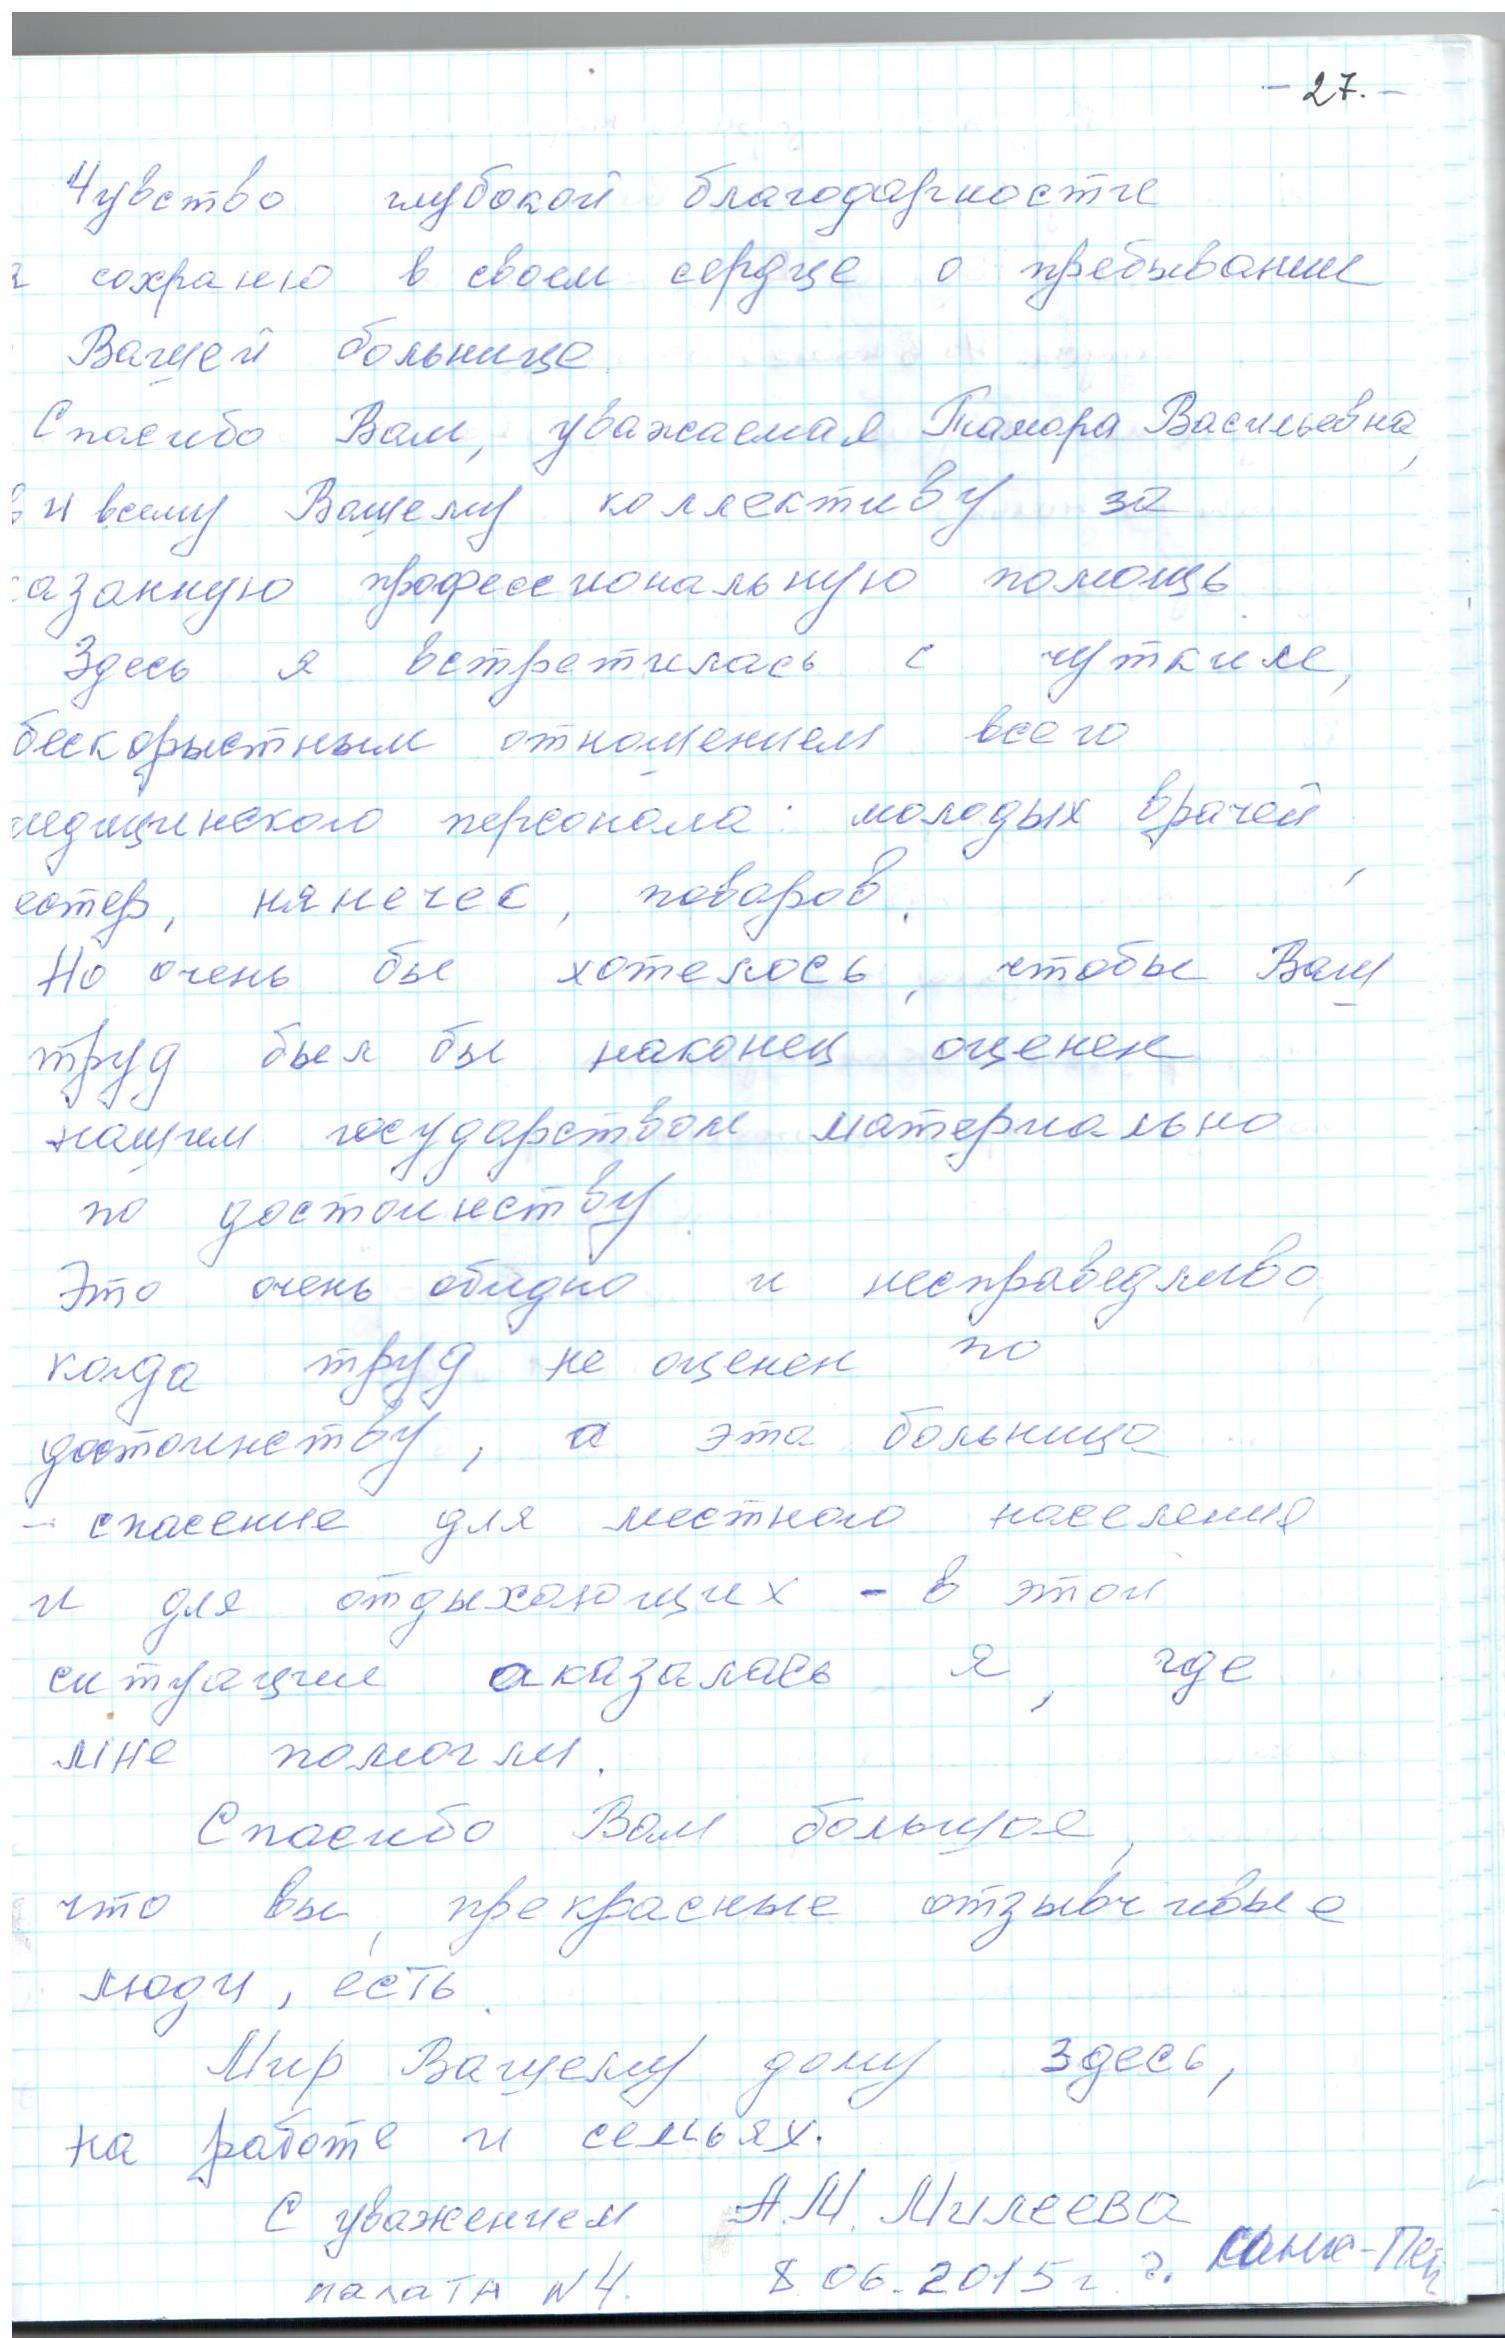 - 27. -
Чувство глубокой благодарности
я сохраню в своем сердце о пребывании
Вашей больнице.
Спасибо Вам, уважаемая Тамара Васильевна,
и всему Вашему коллективу за
казанную профессиональную помощь.
Здесь я встретилась с чутким,
бескорыстным отношением всего
медицинского персонала: молодых врачей,
естер, нянечек, поваров.
Но очень бы хотелось, чтобы Ваш
труд был бы наконец оценен
нашим государством материально
по достоинству.
Это очень обидно и несправедливо,
когда труд не оценен по
достоинству, а эта больница
- спасение для местного населения
и для отдыхающих - в этой
ситуации оказалась я, где
мне помогли.
Спасибо Вам большое,
что вы, прекрасные отзывчивые
люди, есть.
Мир Вашему дому здесь,
на работе и семьях.
С уважением А.М. Милеева
палата №4. 8.06.2015 г. г. Санкт-Пет